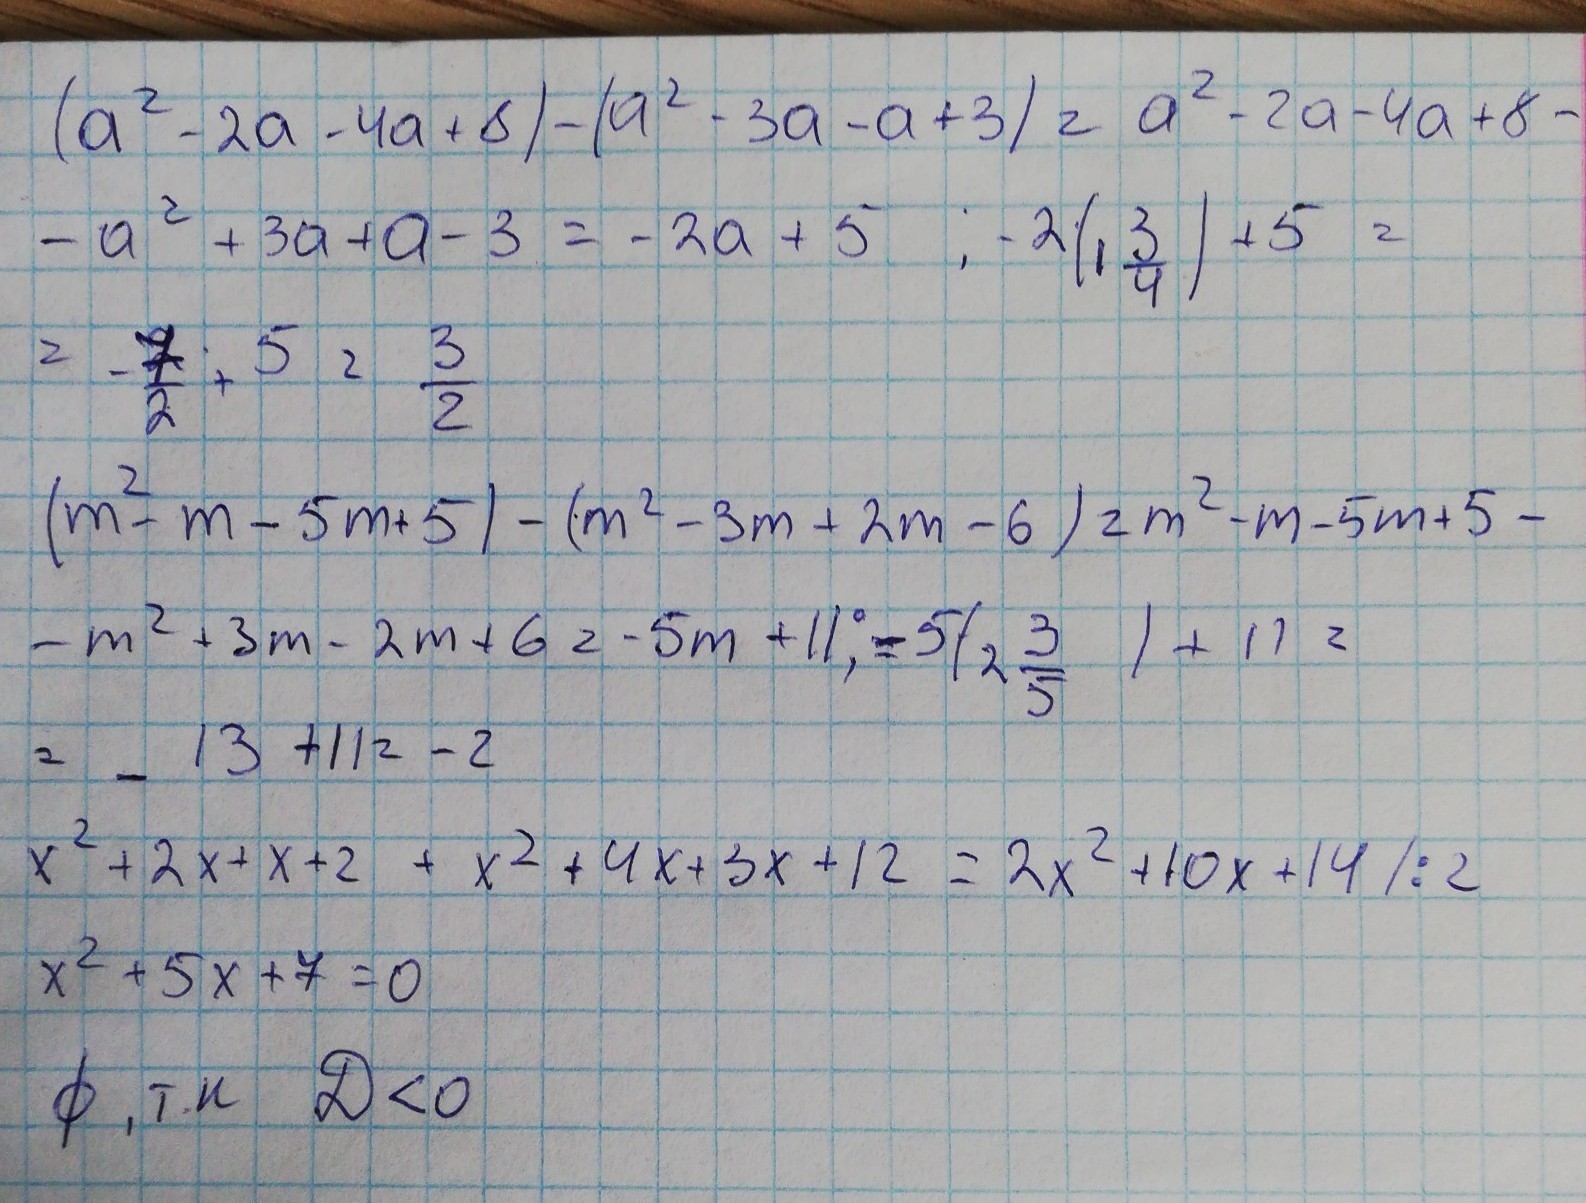 (a² - 2a - 4a + 8) - (a² - 3a - a + 3) = a² - 2a - 4a + 8 -
- a² + 3a + a - 3 = - 2a + 5 ; - 2(1 3/4) + 5 =
= - 7/2 + 5 = 3/2
(m² - m - 5m + 5) - (m² - 3m + 2m - 6) = m² - m - 5m + 5 -
- m² + 3m - 2m + 6 = - 5m + 11; - 5(2 3/5) + 11 =
= - 13 + 11 = - 2
x² + 2x + x + 2 + x² + 4x + 3x + 12 = 2x² + 10x + 14 /: 2
x² + 5x + 7 = 0
∅, т.к D < 0